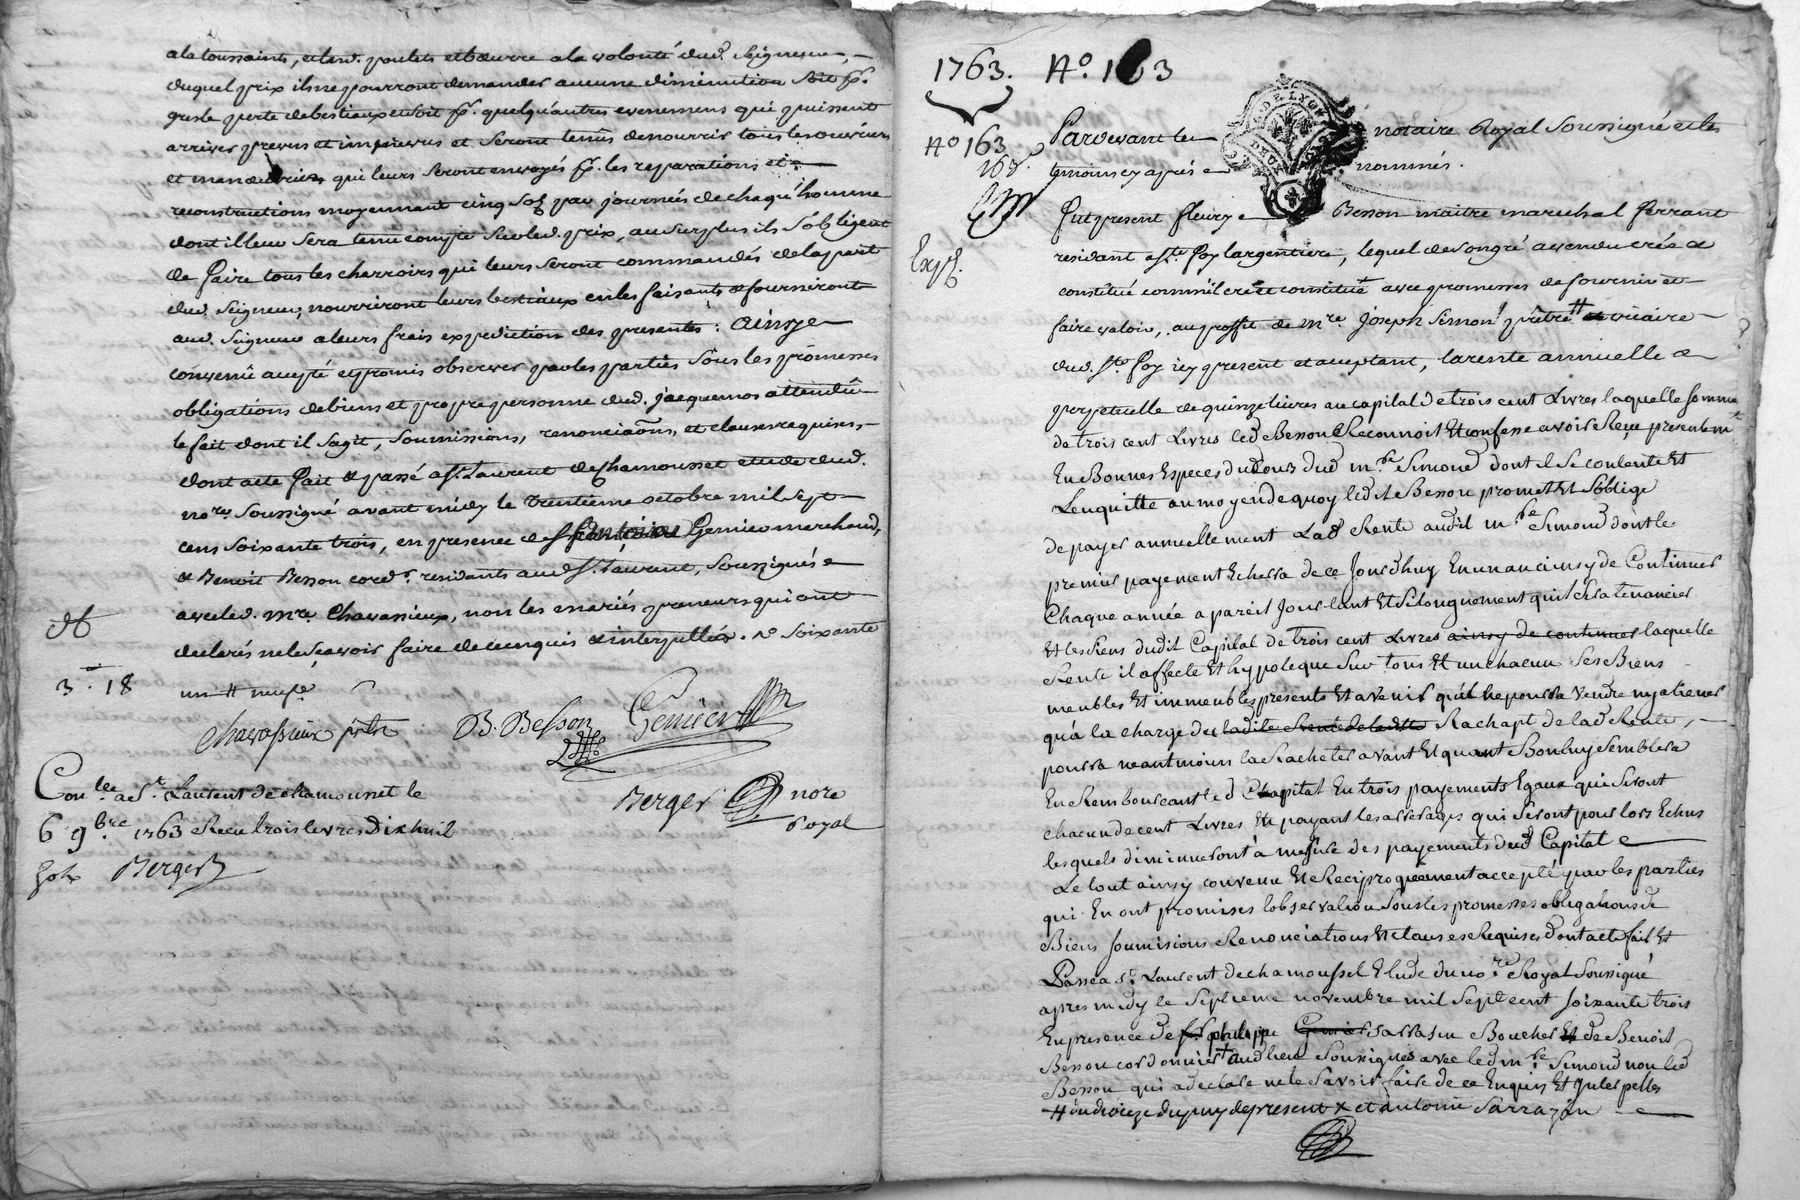 a la toussaints, et led. poulets et boeurre a la volonté dud. Seigneur,
duquel prix ils ne pourront demander aucune diminution soit pr.
gresle perte de bestiaux ou soit pr. quelqu'autres evenemens qui puissent
arriver prevus et imprevus et seront tenus de nourrir tous les ouvriers
et manoeuvriers qui leurs seront envoyés pr. les reparations et
reconstructions moyennant cinq sols par journées de chaque homme
dont il leur sera tenu compte sur led. prix, au surplus ils s'obligent
de faire tous les charroirs qui leurs seront commandés de la part
dud. Seigneur, nourriront leurs bestiaux en les faisants & fourniront
aud. Seigneur a leurs frais expedition des presentes: ainsy
convenû accepté et promis observer par les parties sous les promesses
obligations de biens et propre personne dud. jacquemos attendû
le fait dont il sagit, soumissions, renonciaõns, et clauses requises,
dont acte fait & passé a St. Laurent de Chamousset etude dud.
nore. soussigné avant midy le trentieme octobre mil sept
cens soixante trois, en presence de Sr antoine Gemier marchand,
& Benoit Besson cordr. residants aud. St. Laurent, soussignés
avec led. mre. Chavassieux, non les mariés preneurs qui ont
declarés ne le sçavoir faire de ce enquis & interpellés.
chavassieux ptre B. Besson Gemier
3.. 18
Conlee. a St. Laurent de chamousset le
6 9bre 1763 Receu trois livres dix huit
Berger
Berger nore
royal
1763. No. 163
No 163
Exp.
DE LYON
DEUX
Pardevant le notaire Royal soussigné et les
temoins cy après nommés.
fut present fleury Besson maitre marechal ferrant
residant a Ste. foy largentiere, lequel de son gré a vendu créé &
constitué comm'il crée et constitüe avec promesses de fournir et
faire valoir, au proffit de mre. Joseph Simond prêtre # & vicaire
dud. Ste. Foy icy present et acceptant, la rente annuelle &
perpetuelle de quinze livres au capital de trois cent Livres laquelle somme
de trois cent Livres led Besson Reconnoit Et confesse avoir Reçue presentemt.
En Bonnes Especes du cours dud mre. Simond dont il se contente Et
Lenquitte au moyen de quoy led st Besson promet Et soblige
de payer annuellement Lad Rente aud st mre. Simond dont le
premier payement Echerra de ce Jourdhuy En un an ainsy de Continuer
Chaque année a pareil Jour tant Et si longuement quil sera tenancier
Et les siens dudit Capital de trois cent Livres ainsy de continuer laquelle
Rente il affecte Et hypoteque sur tous Et un chacun ses Biens
meubles Et immeubles presents Et avenir quil ne pourra vendre ny aliener
qu'à la charge de ladite Rente de ladte Rachapt de lad Rente,
pourra neantmoins la Racheter avant Et quant Bon luy semblera
En Remboursant led Capital En trois payements Egaux qui seront
chacun de cent Livres Et payant les arrerages qui seront pour lors Echus
lesquels diminueront à mesure des payements dud Capital
Le tout ainsy convenu Et Reciproquement accepté par les parties
qui En ont promises lobservation sous les promesses obligations de
Biens soumisions Renonciations Et clauses Requises dont acte fait Et
Passé a st. Laurent de chamousset Etude du nore. Royal soussigné
apres midy le septieme novembre mil sept cent soixante trois
En presence de sr philippe Gemier sarrasin Boucher Et de Benoit
Besson cordonnier + aud lieu soussignés avec led mre. Simond non led
Besson qui a declaré ne le savoir faire de ce Enquis Et Interpellé
# du diocese du puy de present x et antoine Sarrazin